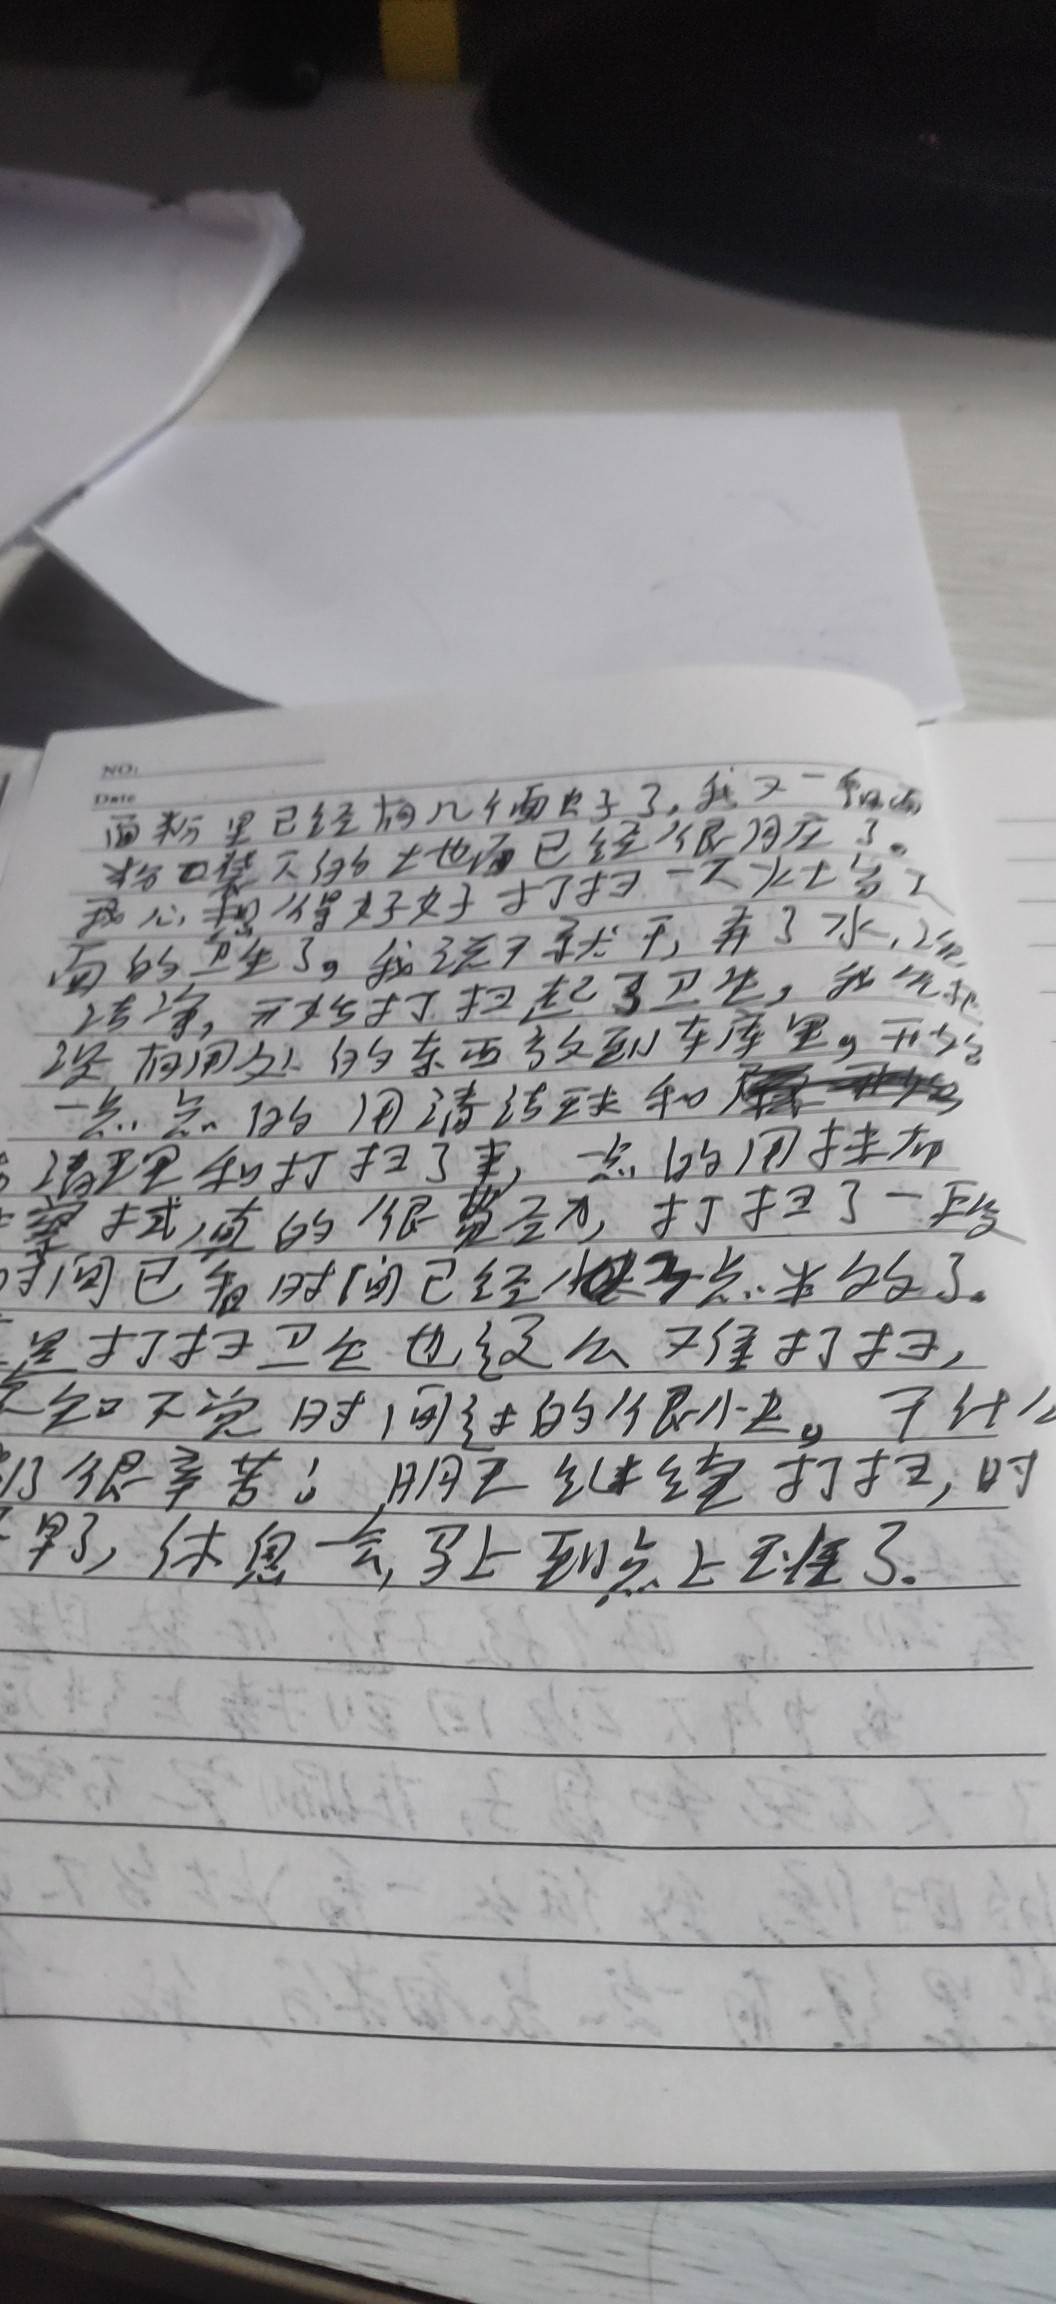 NO:
Date
面粉里已经有几个面虫子了,我又一
粉口袋下的土地面已经很脏了。
我心想得好好打扫一下火土台
面的卫生了。我说干就干,弄了水,
洁净,开始打扫起了卫生,我先把
没有用处的东西放到车库里。开始
一点点的用清洁球和
清理和打扫了来,一点的用抹布
擦拭,真的很费劲,打扫了一段
时间已看时间已经快3点半多了。
打扫卫生也这么又难打扫,
不知不觉时间过的很快。干什么
都很辛苦;明天继续打扫,时
早了,休息一会,马上到点上班了。